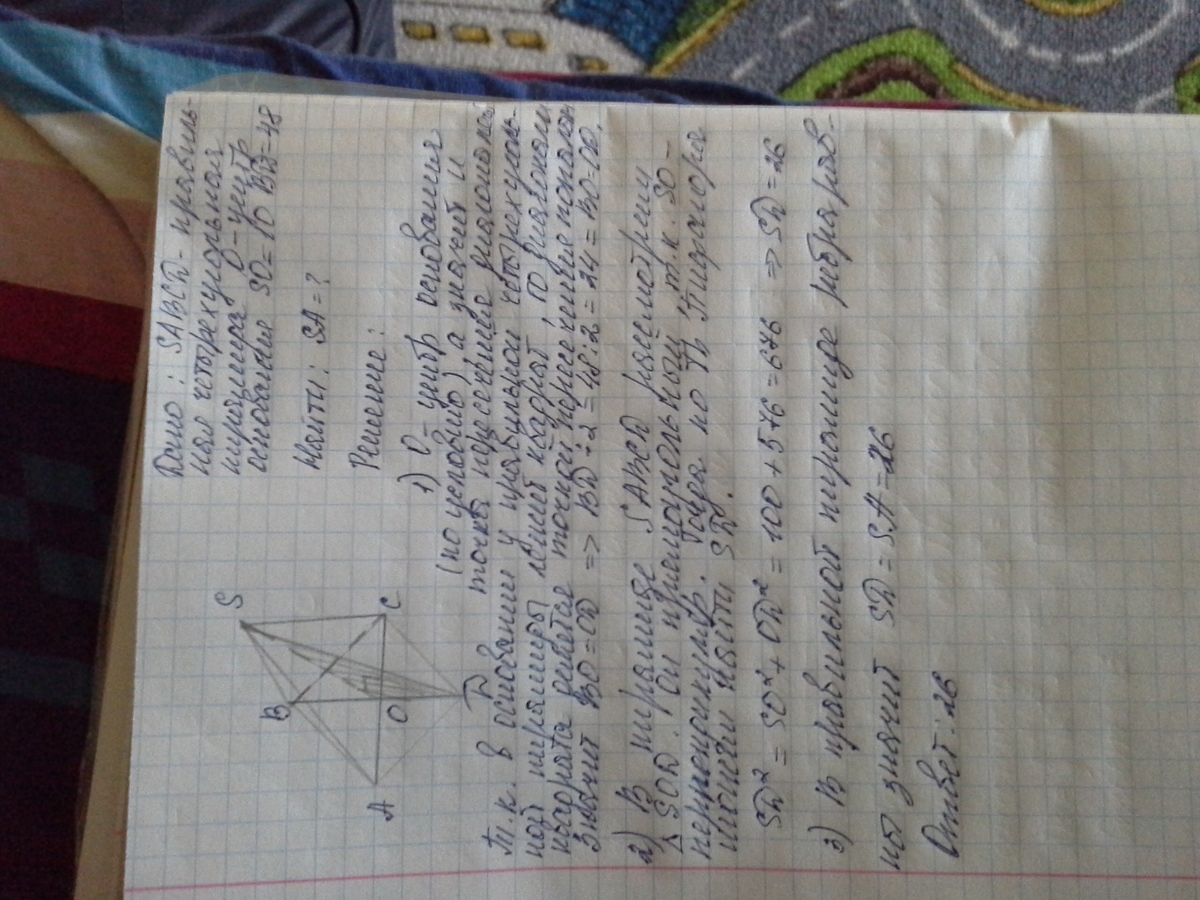 Дано: SABCD - правиль-
ная четырехугольная
пирамида О-центр
основания SO=10 BD=48
Найти: SA=?
Решение:
S
B
C
O
A
D
1) О - центр основания
(по условию), а значит и
точка пересечения диагоналей
Т.к. в основании у правильной четырехуголь-
ной пирамиды лежит квадрат, то диагонали
квадрата делятся точкой пересечения пополам
Значит BO=OD => BD÷2=48:2=24=BO=OD.
2) В пирамиде SABCD рассмотрим
△ SOD. Он прямоугольный, т.к. SO-
перпендикуляр. Тогда по Th Пифагора
можем найти SD.
SD²=SO²+OD²=100+576=676 => SD=26
3) В правильной пирамиде ребра рав-
ны значит SD=SA=26
Ответ: 26